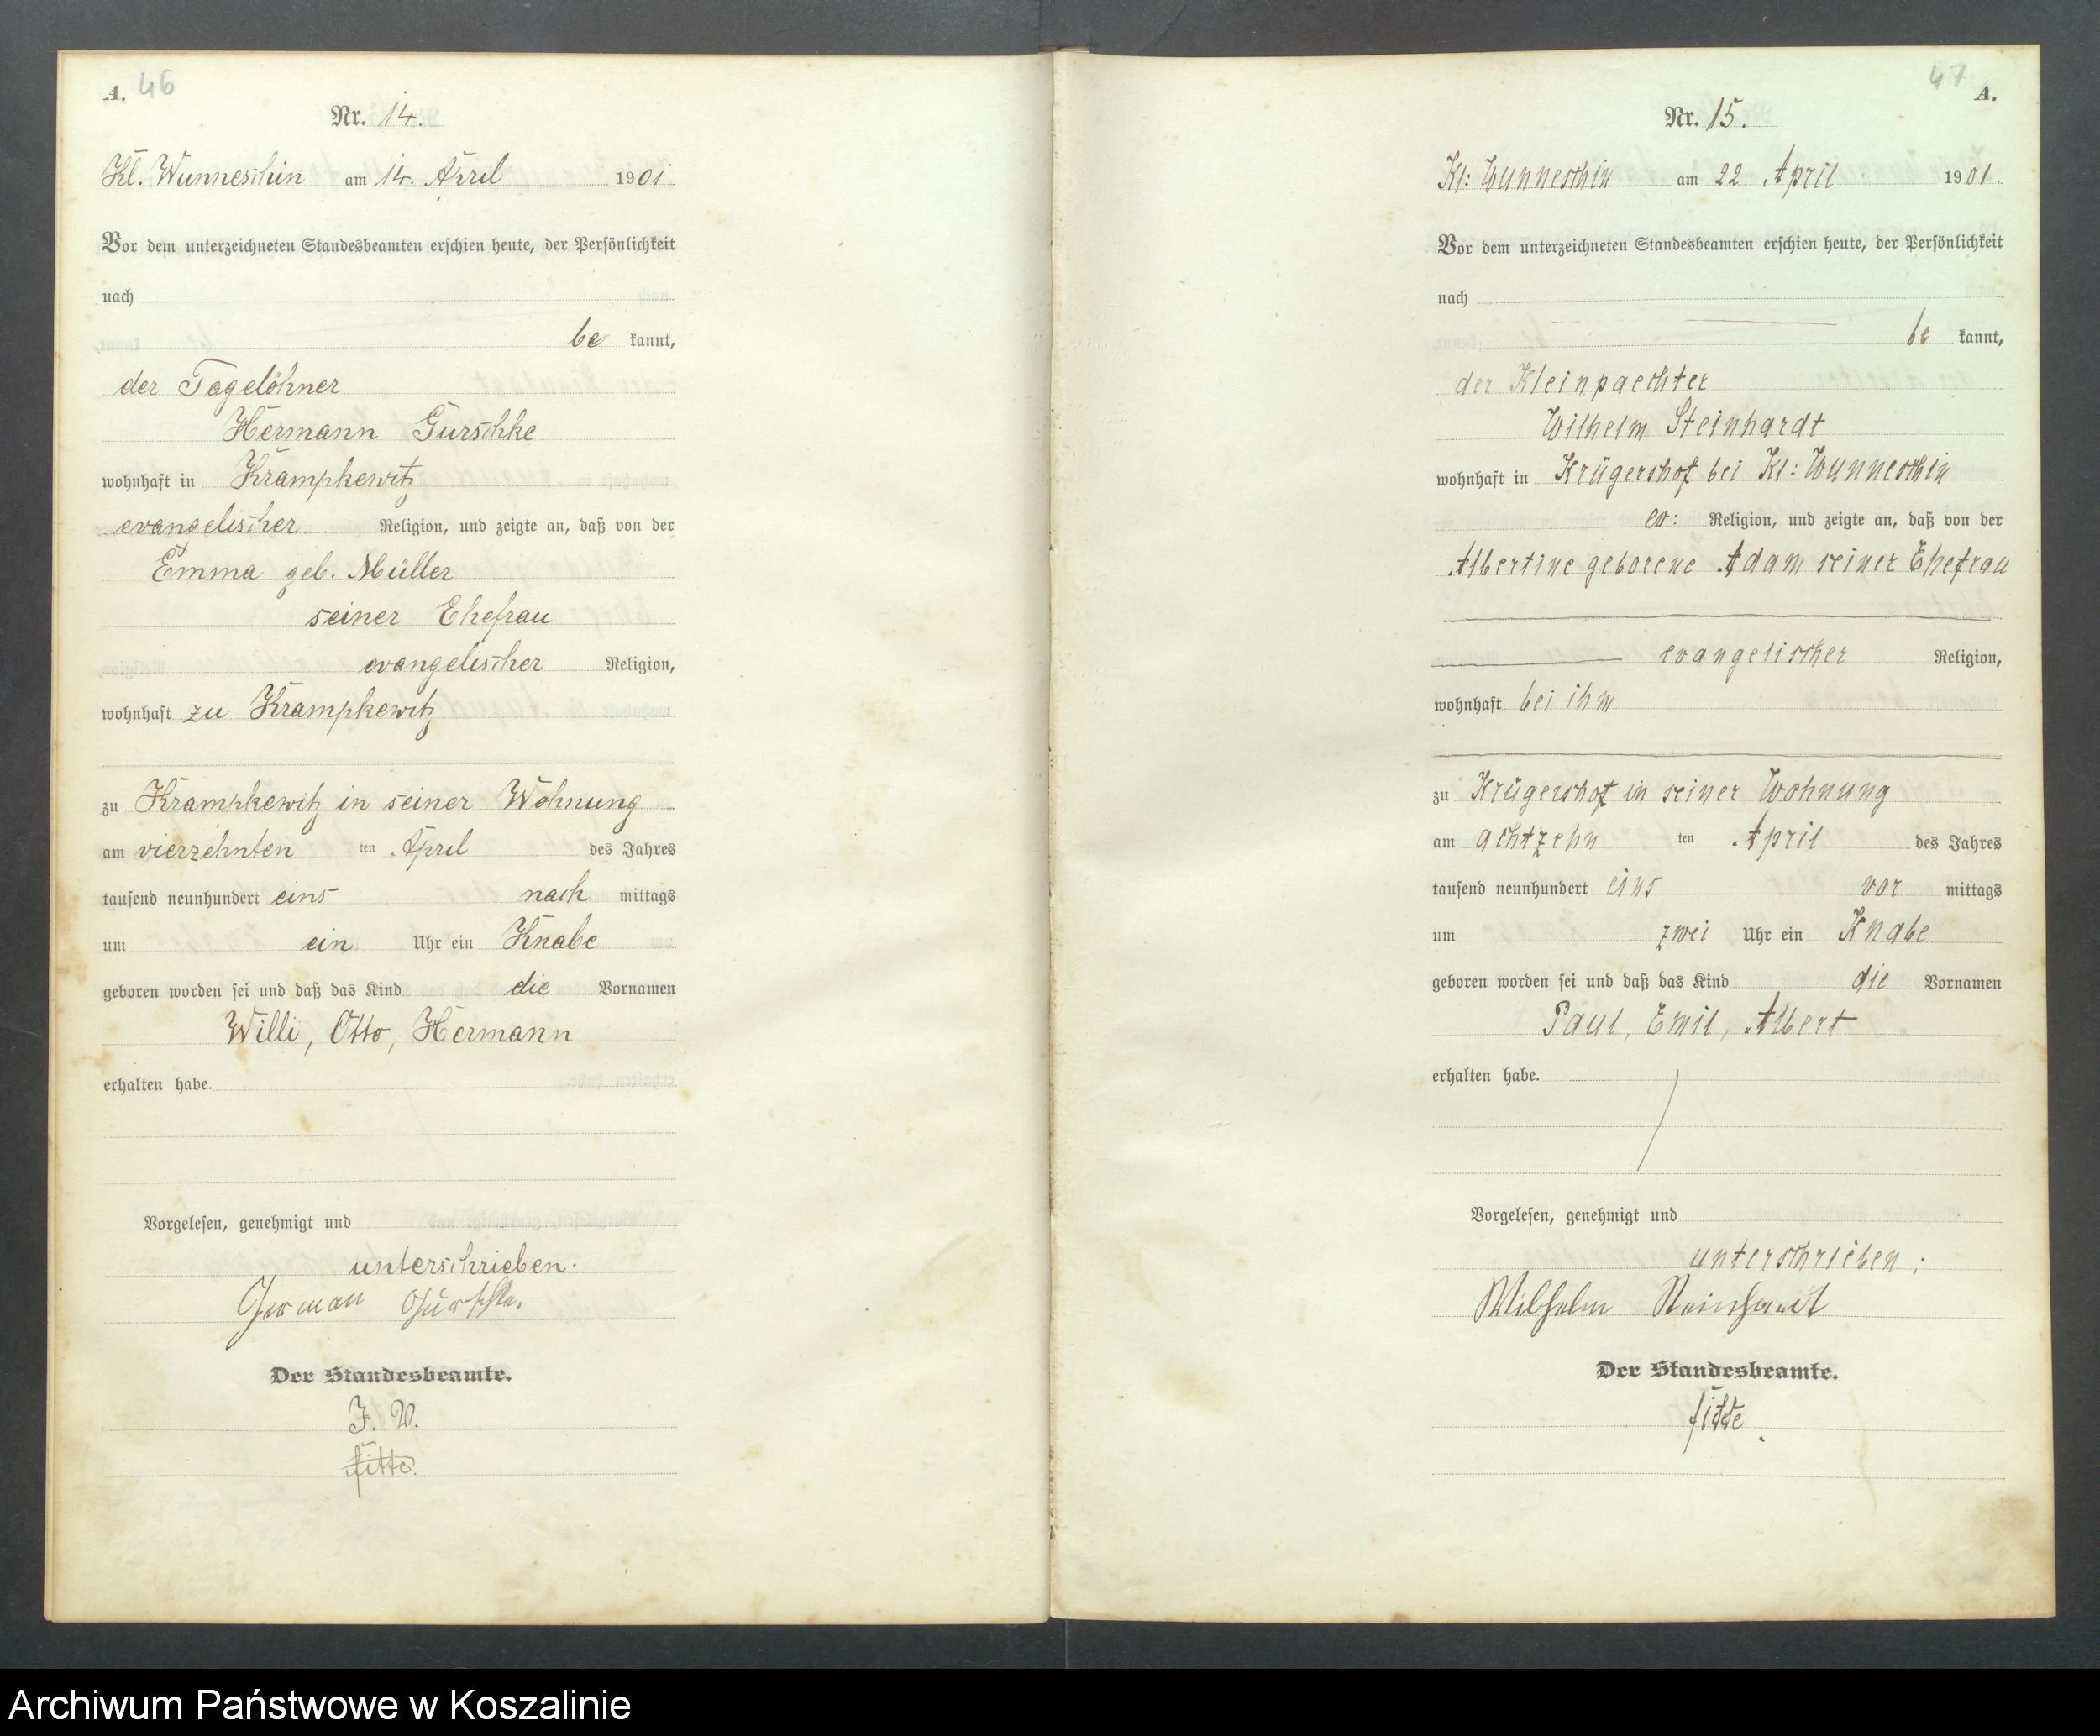 A. 46
Nr. 14.
Kl. Wunneschin am 14. April 1901.
Vor dem unterzeichneten Standesbeamten erschien heute, der Persönlichkeit
nach
be kannt,
der Tagelöhner
Hermann Gurschke
wohnhaft in Krampkewitz
evangelischer Religion, und zeigte an, daß von der
Emma geb. Müller
seiner Ehefrau
evangelischer Religion,
wohnhaft zu Krampkewitz
zu Krampkewitz in seiner Wohnung
am vierzehnten ten April des Jahres
tausend neunhundert eins nach mittags
um ein Uhr ein Knabe
geboren worden sei und daß das Kind die Vornamen
Willi, Otto, Hermann
erhalten habe.
Vorgelesen, genehmigt und
unterschrieben.
Herman Gurschke.
Der Standesbeamte.
J. V.
47 A.
Nr. 15.
Kl: Wunneschin am 22 April 1901.
Vor dem unterzeichneten Standesbeamten erschien heute, der Persönlichkeit
nach
be kannt,
der Kleinpaechter
Wilhelm Steinhardt
wohnhaft in Krügershof bei Kl: Wunneschin
ev: Religion, und zeigte an, daß von der
Albertine geborene Adam seiner Ehefrau
evangelischer Religion,
wohnhaft bei ihm
zu Krügershof in seiner Wohnung
am achtzehn ten April des Jahres
tausend neunhundert eins vor mittags
um zwei Uhr ein Knabe
geboren worden sei und daß das Kind die Vornamen
Paul, Emil, Albert
erhalten habe.
Vorgelesen, genehmigt und
unterschrieben:
Wilhelm Steinhardt
Der Standesbeamte.
Archiwum Państwowe w Koszalinie